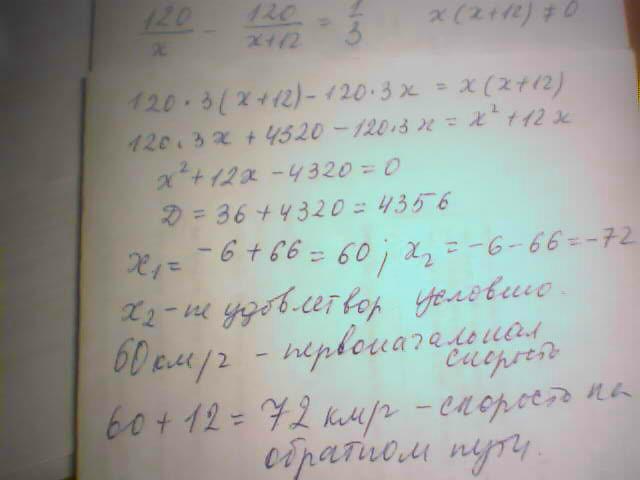 120/x - 120/x+12 = 1/3   x(x+12) ≠ 0
120·3(x+12)-120·3x = x(x+12)
120·3x + 4320-120·3x = x²+12x
x²+12x-4320=0
Д = 36+4320=4356
x₁= -6+66=60; x₂=-6-66=-72
x₂-не удовлетвор условию.
60 км/г - первоначальная
скорость
60+12=72 км/г-скорость на
обратном пути.